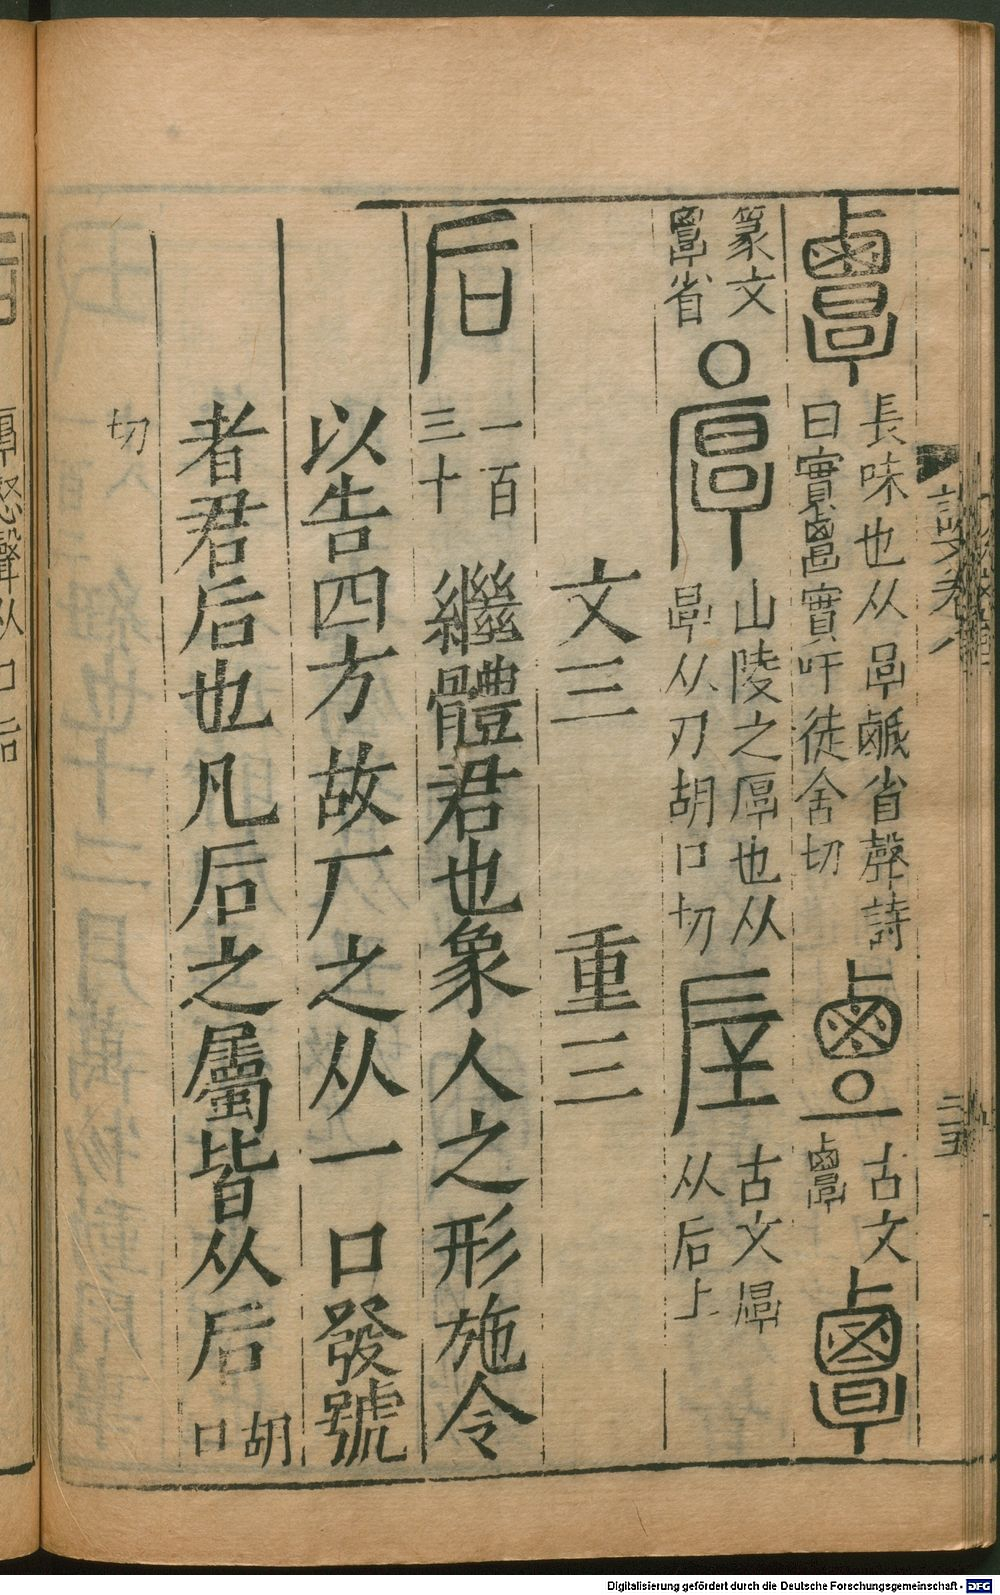 長味也从㫗鹹省聲詩
曰實覃實吁徒含切
古文
覃
篆文
覃省
厚
山陵之厚也从
㫗从厂胡口切
垕
古文厚
从后土
文三 重三
后
一百
三十
繼體君也象人之形施令
以告四方故厂之从一口發號
者君后也凡后之屬皆从后
胡
口
切
說文卷八
二五
Digitalisierung gefördert durch die Deutsche Forschungsgemeinschaft - DFG